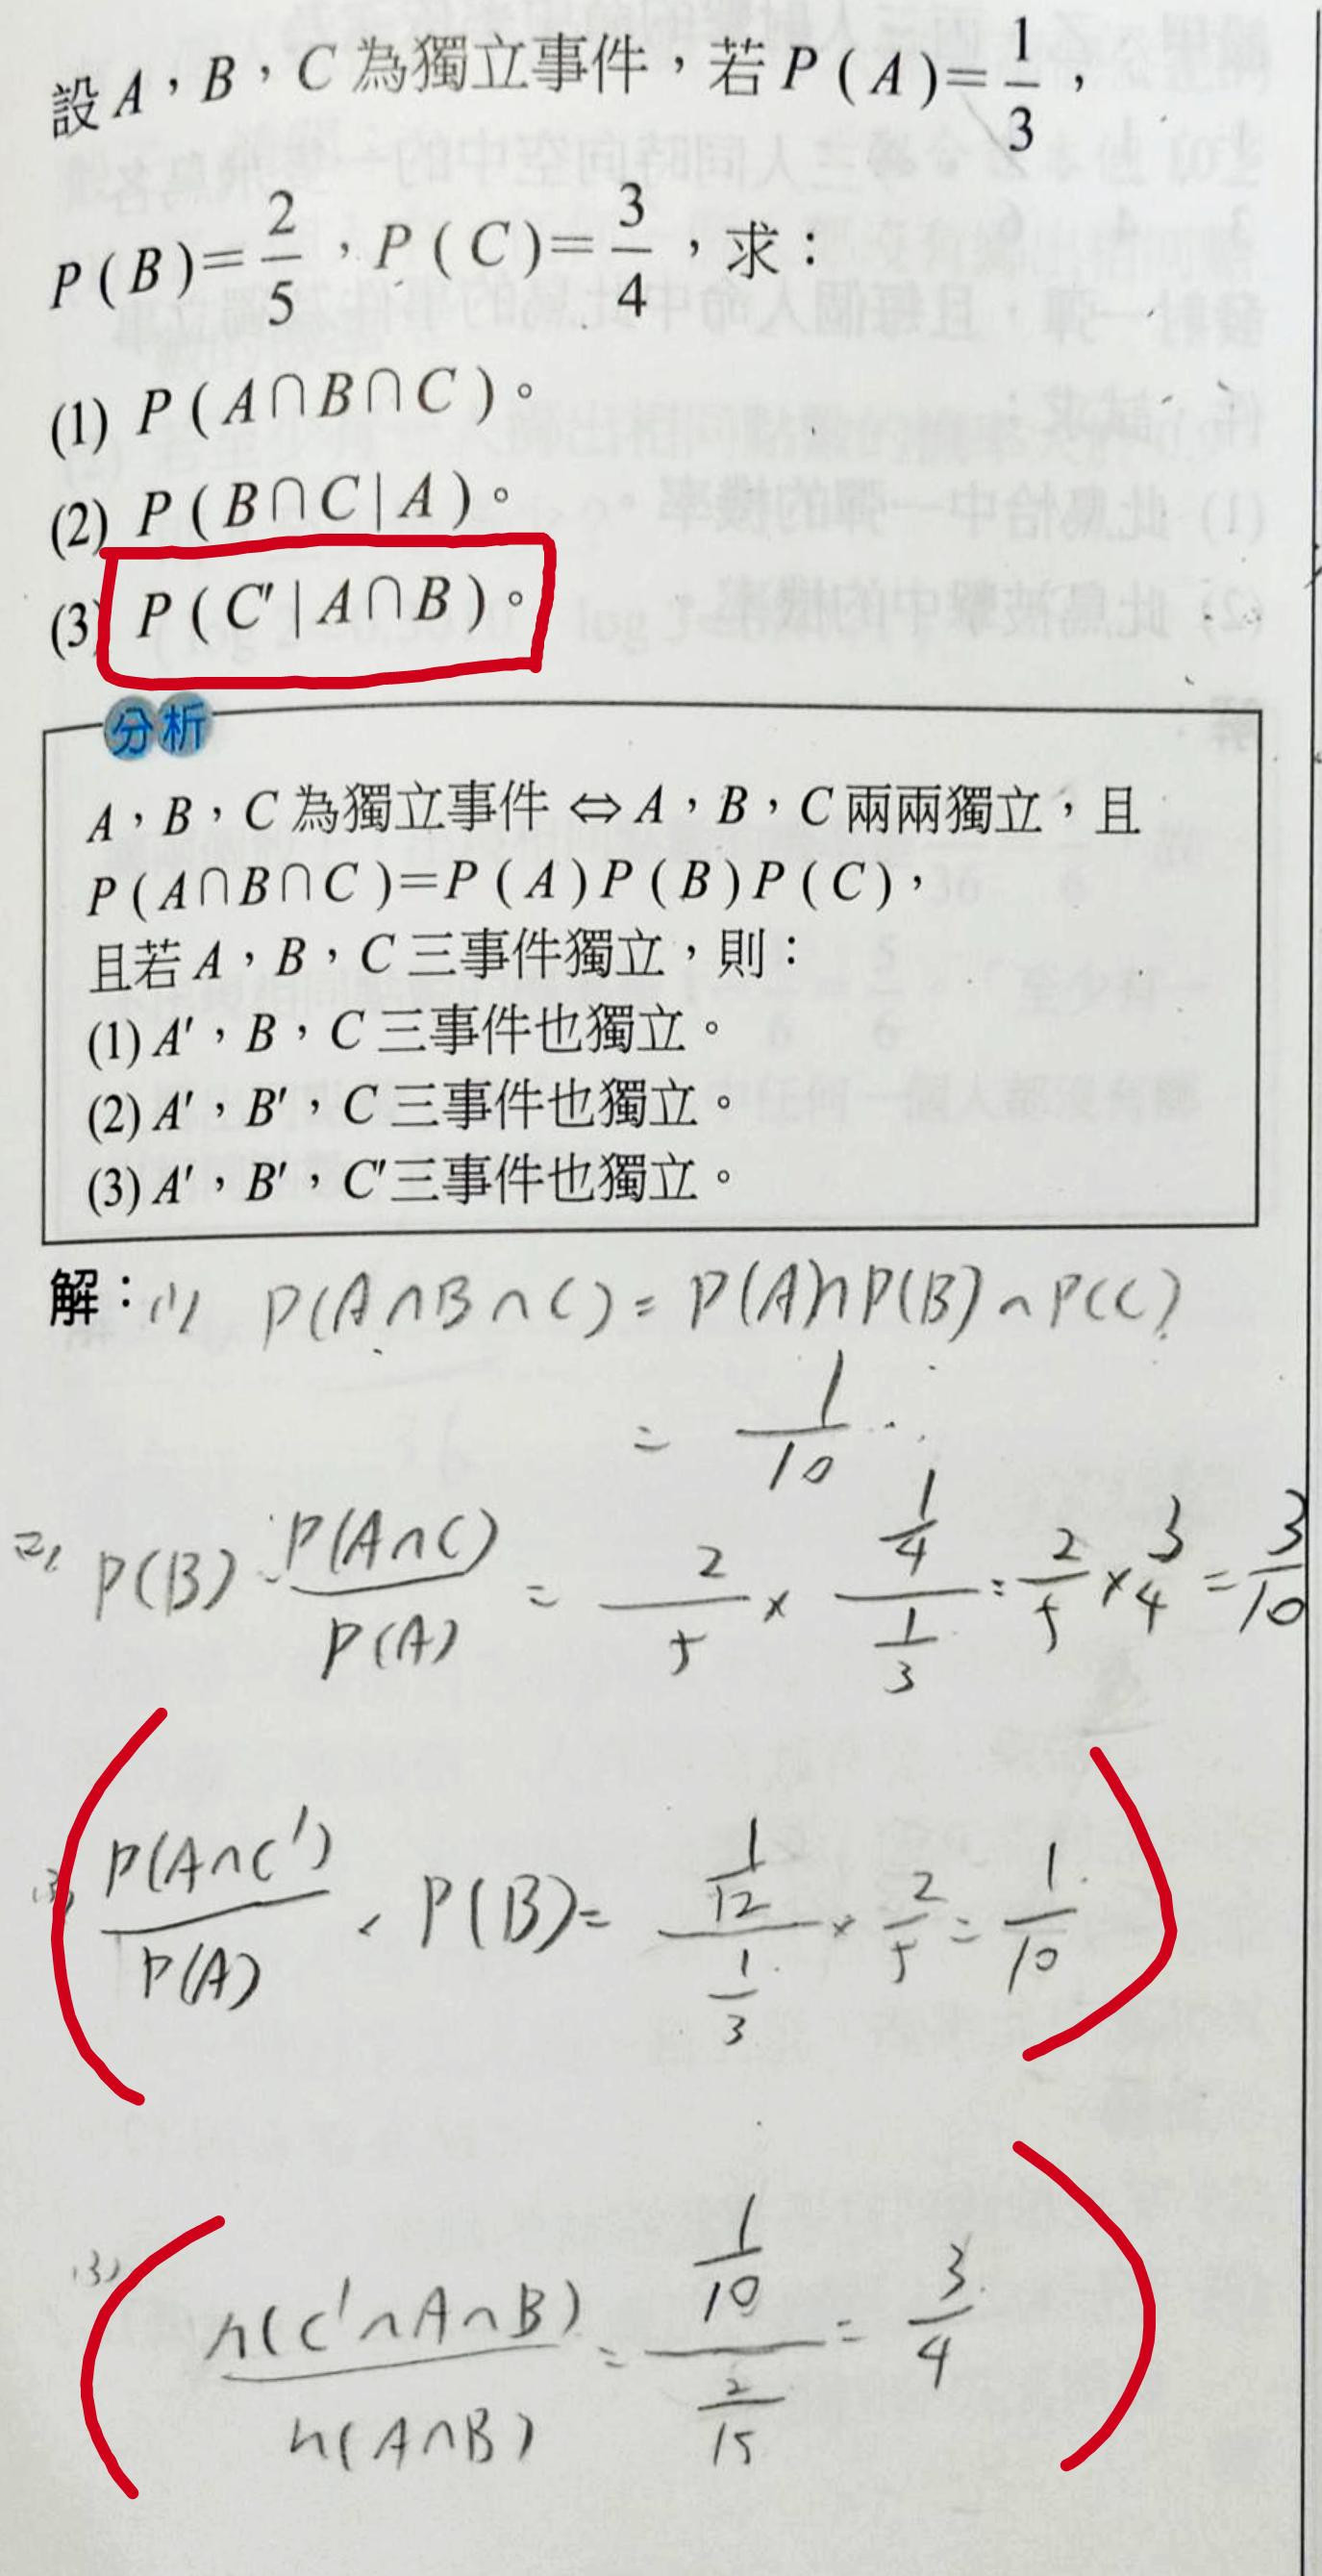 設A，B，C為獨立事件，若P(A)=1/3，
P(B)=2/5，P(C)=3/4，求：
(1) P(A∩B∩C)。
(2) P(B∩C|A)。
(3) P(C′|A∩B)。
分析
A，B，C為獨立事件⇔A，B，C兩兩獨立，且
P(A∩B∩C)=P(A)P(B)P(C)，
且若A，B，C三事件獨立，則：
(1) A′，B，C三事件也獨立。
(2) A′，B′，C三事件也獨立。
(3) A′，B′，C′三事件也獨立。
解：(1) P(A∩B∩C)=P(A)∩P(B)∩P(C)
= 1/10
(2) P(B)·P(A∩C)/P(A) = 2/5 × (1/4)/(1/3) = 2/5 × 3/4 = 3/10
(3) P(A∩C′)/P(A) · P(B) = (1/12)/(1/3) × 2/5 = 1/10
(3) n(C′∩A∩B)/n(A∩B) = (1/10)/(2/15) = 3/4